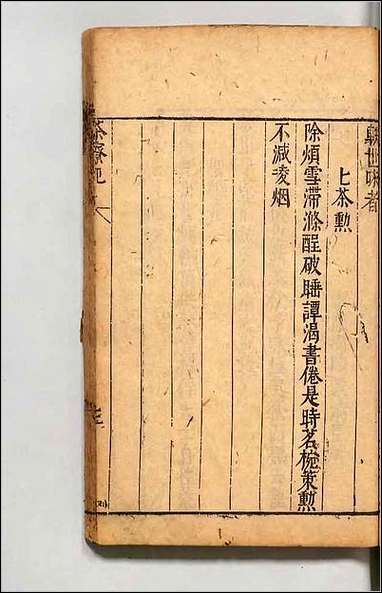 世味者
七茶勲
除煩雪滯滌酲破睡譚渴書倦是時茗椀策勲
不減凌烟
茶寮記